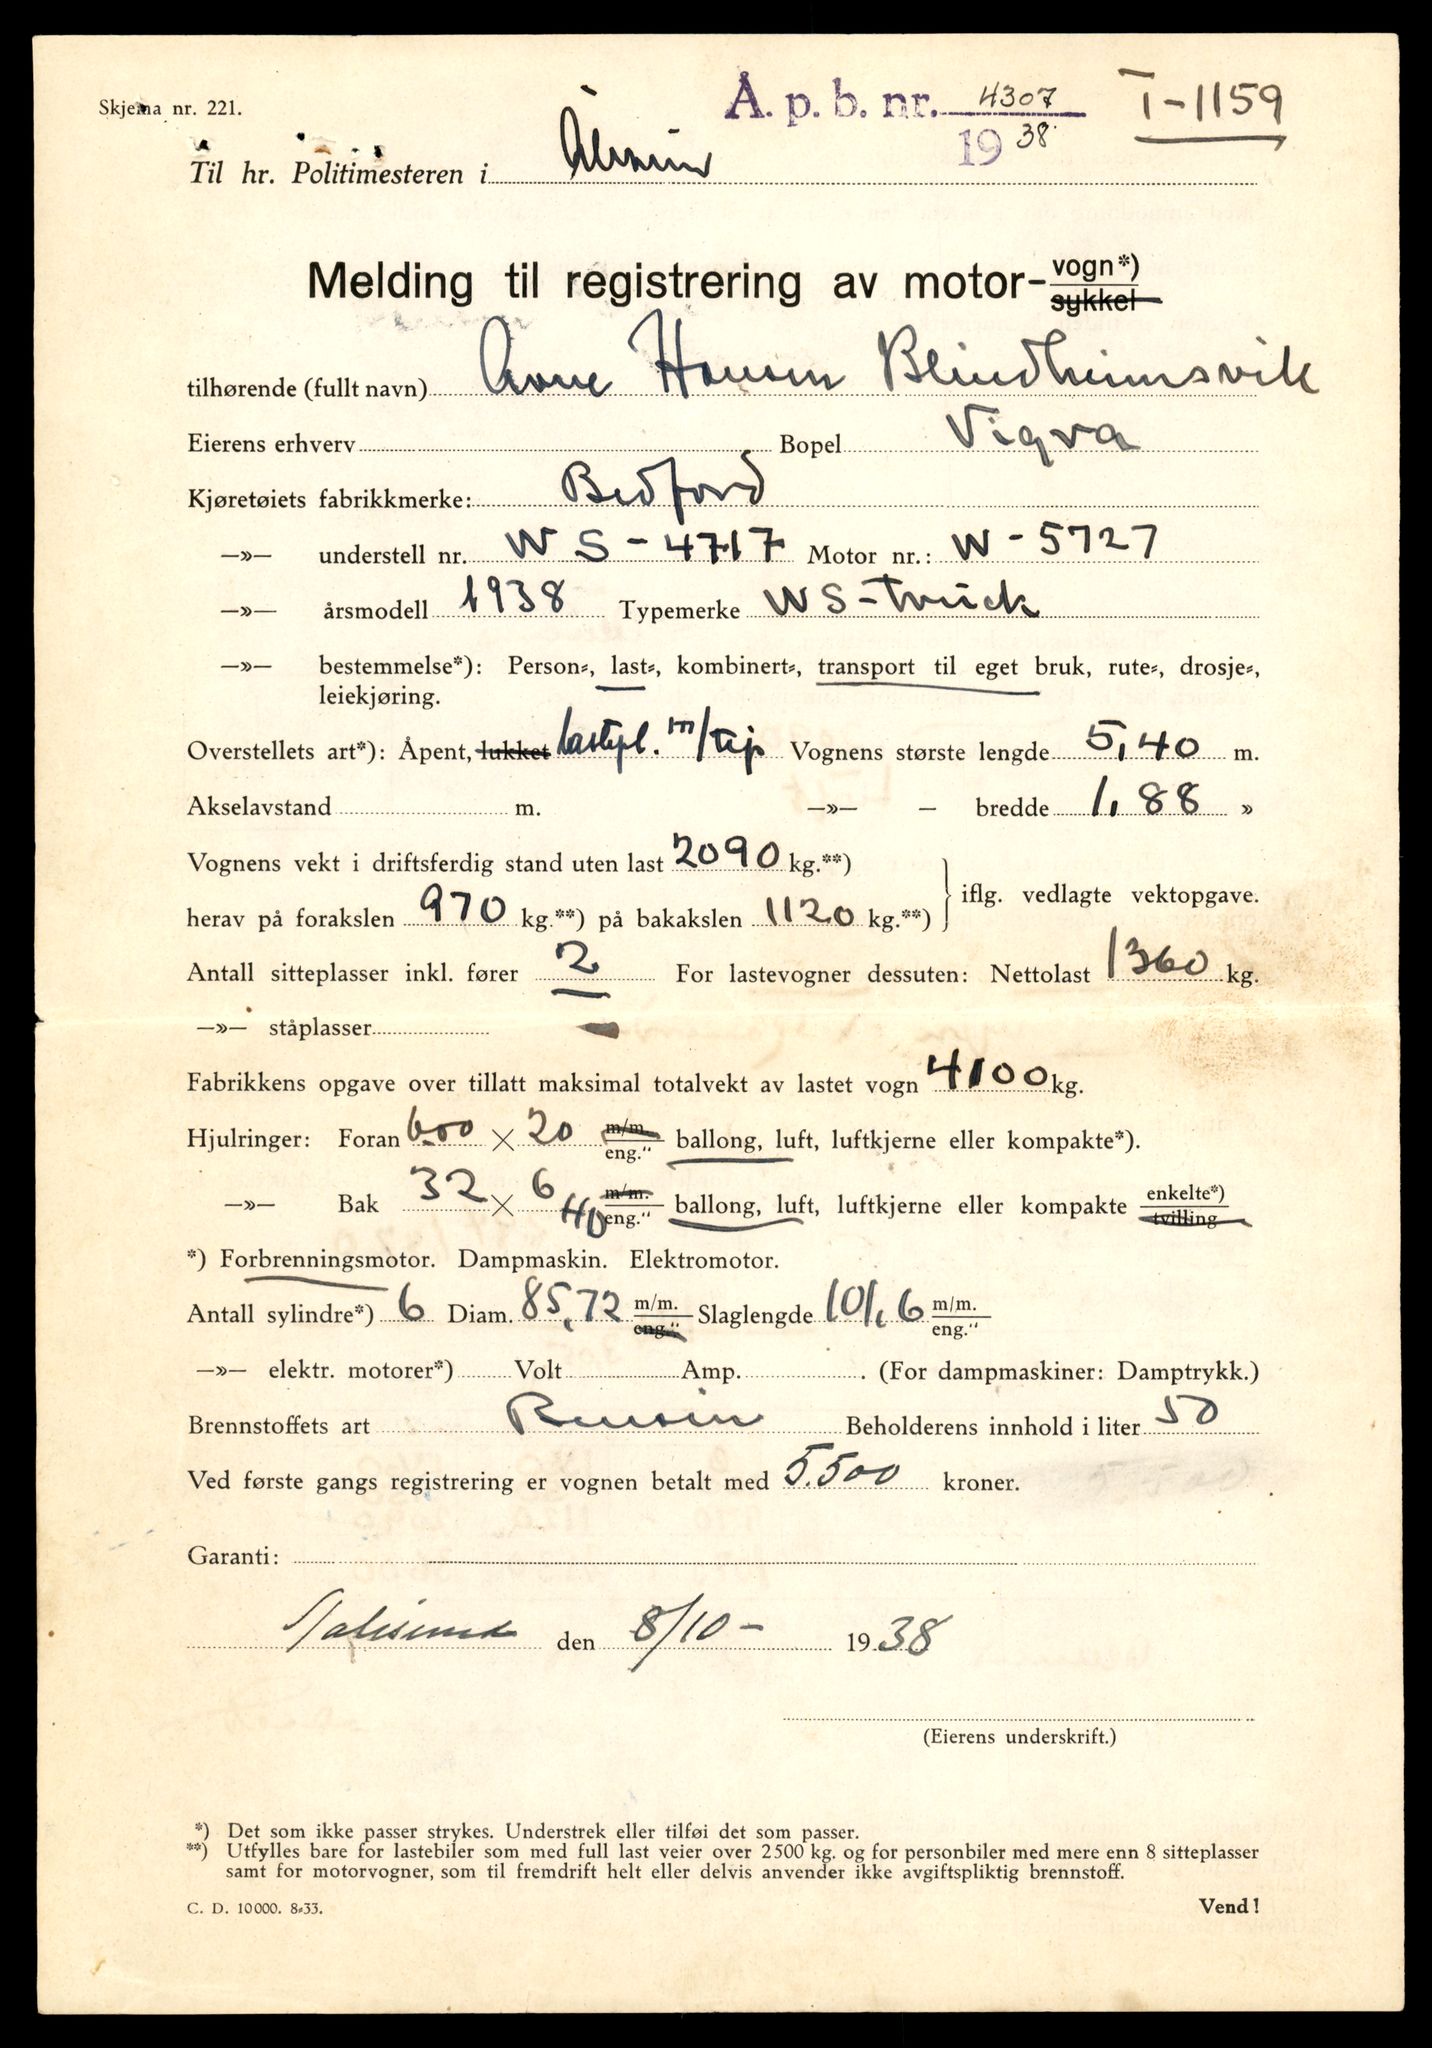 Skjema nr. 221.
Å. p. b. nr. 4307
1938.
T-1159
Til hr. Politimesteren i Ålesund
Melding til registrering av motor- vogn*)
sykkel
tilhørende (fullt navn) Arne Hansen Blindheimsvik
Eierens erhverv Bopel Vigra
Kjøretøiets fabrikkmerke: Bedford
—»— understell nr. WS-4717 Motor nr.: W-5727
—»— årsmodell 1938 Typemerke WS-truck
—»— bestemmelse*): Person-, last-, kombinert-, transport til eget bruk, rute-, drosje-,
leiekjøring.
Overstellets art*): Åpent, lukket lastepl. m/tip Vognens største lengde 5,40 m.
Akselavstand m. —»— — bredde 1,88 »
Vognens vekt i driftsferdig stand uten last 2090 kg.**)
herav på forakslen 970 kg.**) på bakakslen 1120 kg.**)
iflg. vedlagte vektopgave.
Antall sitteplasser inkl. fører 2 For lastevogner dessuten: Nettolast 1360 kg.
—»— ståplasser
Fabrikkens opgave over tillatt maksimal totalvekt av lastet vogn 4100 kg.
Hjulringer: Foran 600 × 20 m/m. eng." ballong, luft, luftkjerne eller kompakte*).
—»— Bak 32 × 6 HD m/m. eng." ballong, luft, luftkjerne eller kompakte enkelte*) tvilling
*) Forbrenningsmotor. Dampmaskin. Elektromotor.
Antall sylindre*) 6 Diam. 85,72 m/m. eng." Slaglengde 101,6 m/m. eng."
—»— elektr. motorer*) Volt Amp. . (For dampmaskiner: Damptrykk.)
Brennstoffets art Bensin Beholderens innhold i liter 50
Ved første gangs registrering er vognen betalt med 5.500 kroner.
Garanti:
Aalesund den 8/10- 1938
(Eierens underskrift.)
*) Det som ikke passer strykes. Understrek eller tilføi det som passer.
**) Utfylles bare for lastebiler som med full last veier over 2500 kg. og for personbiler med mere enn 8 sitteplasser
samt for motorvogner, som til fremdrift helt eller delvis anvender ikke avgiftspliktig brennstoff.
C. D. 10000. 8-33.
Vend!